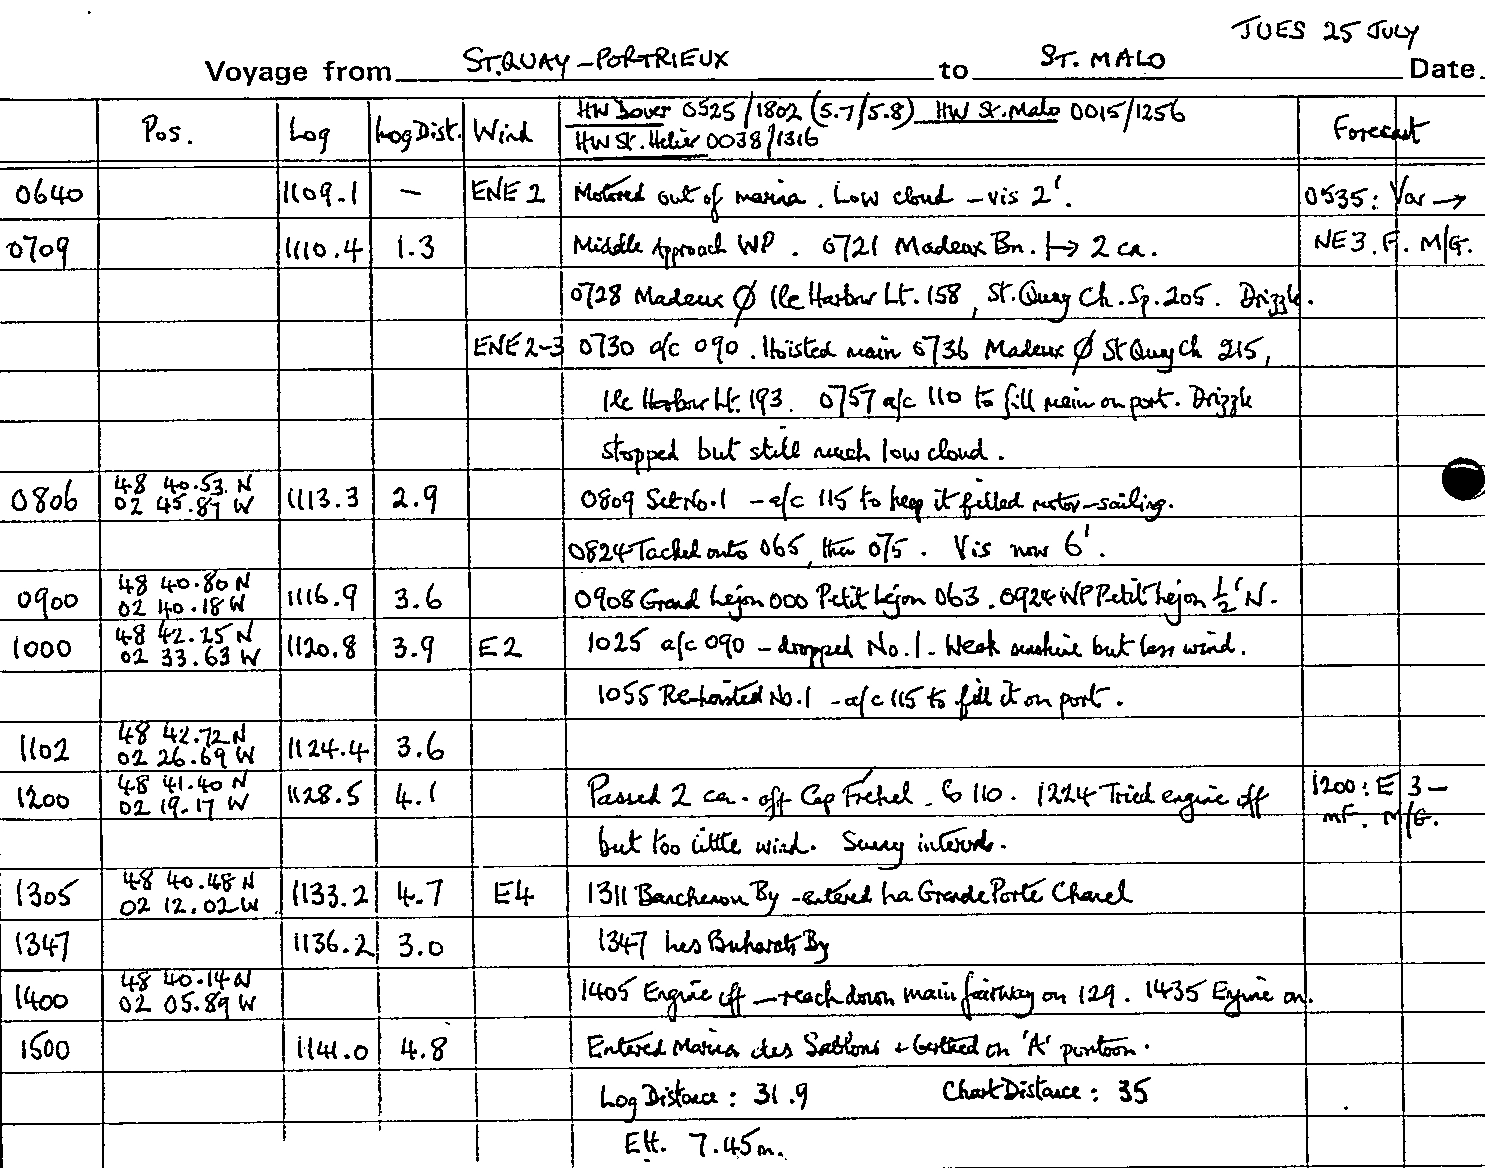 JUES 25 JULY
Voyage from ST.QUAY-PORTRIEUX to ST. MALO Date
Pos. Log Log Dist. Wind HW Dover 0525/1802 (5.7/5.8) HW St.Malo 0015/1256 Forecast
HW St. Helier 0038/1316
0640 1109.1 — ENE 2 Motored out of marina. Low cloud - vis 2'. 0535: Var →
0709 1110.4 1.3 Middle Approach WP. 0721 Madeux Bn. |→ 2 ca. NE3. F. M/G.
0728 Madeux Ø Ile Harbour Lt. 158, St. Quay Ch. Sp. 205. Drizzle.
ENE 2-3 0730 a/c 090. Hoisted main 0736 Madeux Ø St Quay Ch 215,
Ile Harbour Lt. 193. 0757 a/c 110 to fill main on port. Drizzle
stopped but still much low cloud.
48 40.53 N
0806 02 45.87 W 1113.3 2.9 0809 Set No.1 - a/c 115 to keep it filled motor-sailing.
0824 Tacked onto 065, then 075. Vis now 6'.
48 40.80 N
0900 02 40.18 W 1116.9 3.6 0908 Grand Lejon 000 Petit Lejon 063. 0924 WP Petit Lejon ½' N.
48 42.25 N
1000 02 33.63 W 1120.8 3.9 E2 1025 a/c 090 - dropped No.1. Weak sunshine but less wind.
1055 Re-hoisted No.1 - a/c 115 to fill it on port.
48 42.72 N
1102 02 26.69 W 1124.4 3.6
48 41.40 N
1200 02 19.17 W 1128.5 4.1 Passed 2 ca. off Cap Fréhel. Co 110. 1224 Tried engine off 1200: E 3-
but too little wind. Sunny intervals. mF. M/G.
48 40.48 N
1305 02 12.02 W 1133.2 4.7 E4 1311 Banchenou By - entered La Grande Porte Chanel
1347 1136.2 3.0 1347 Les Buharats By
48 40.14 N
1400 02 05.89 W 1405 Engine off - reach down main fairway on 129. 1435 Engine on.
1500 1141.0 4.8 Entered Marina des Sablons + berthed on 'A' pontoon.
Log Distance: 31.9 Chart Distance: 35
EH. 7.45m.